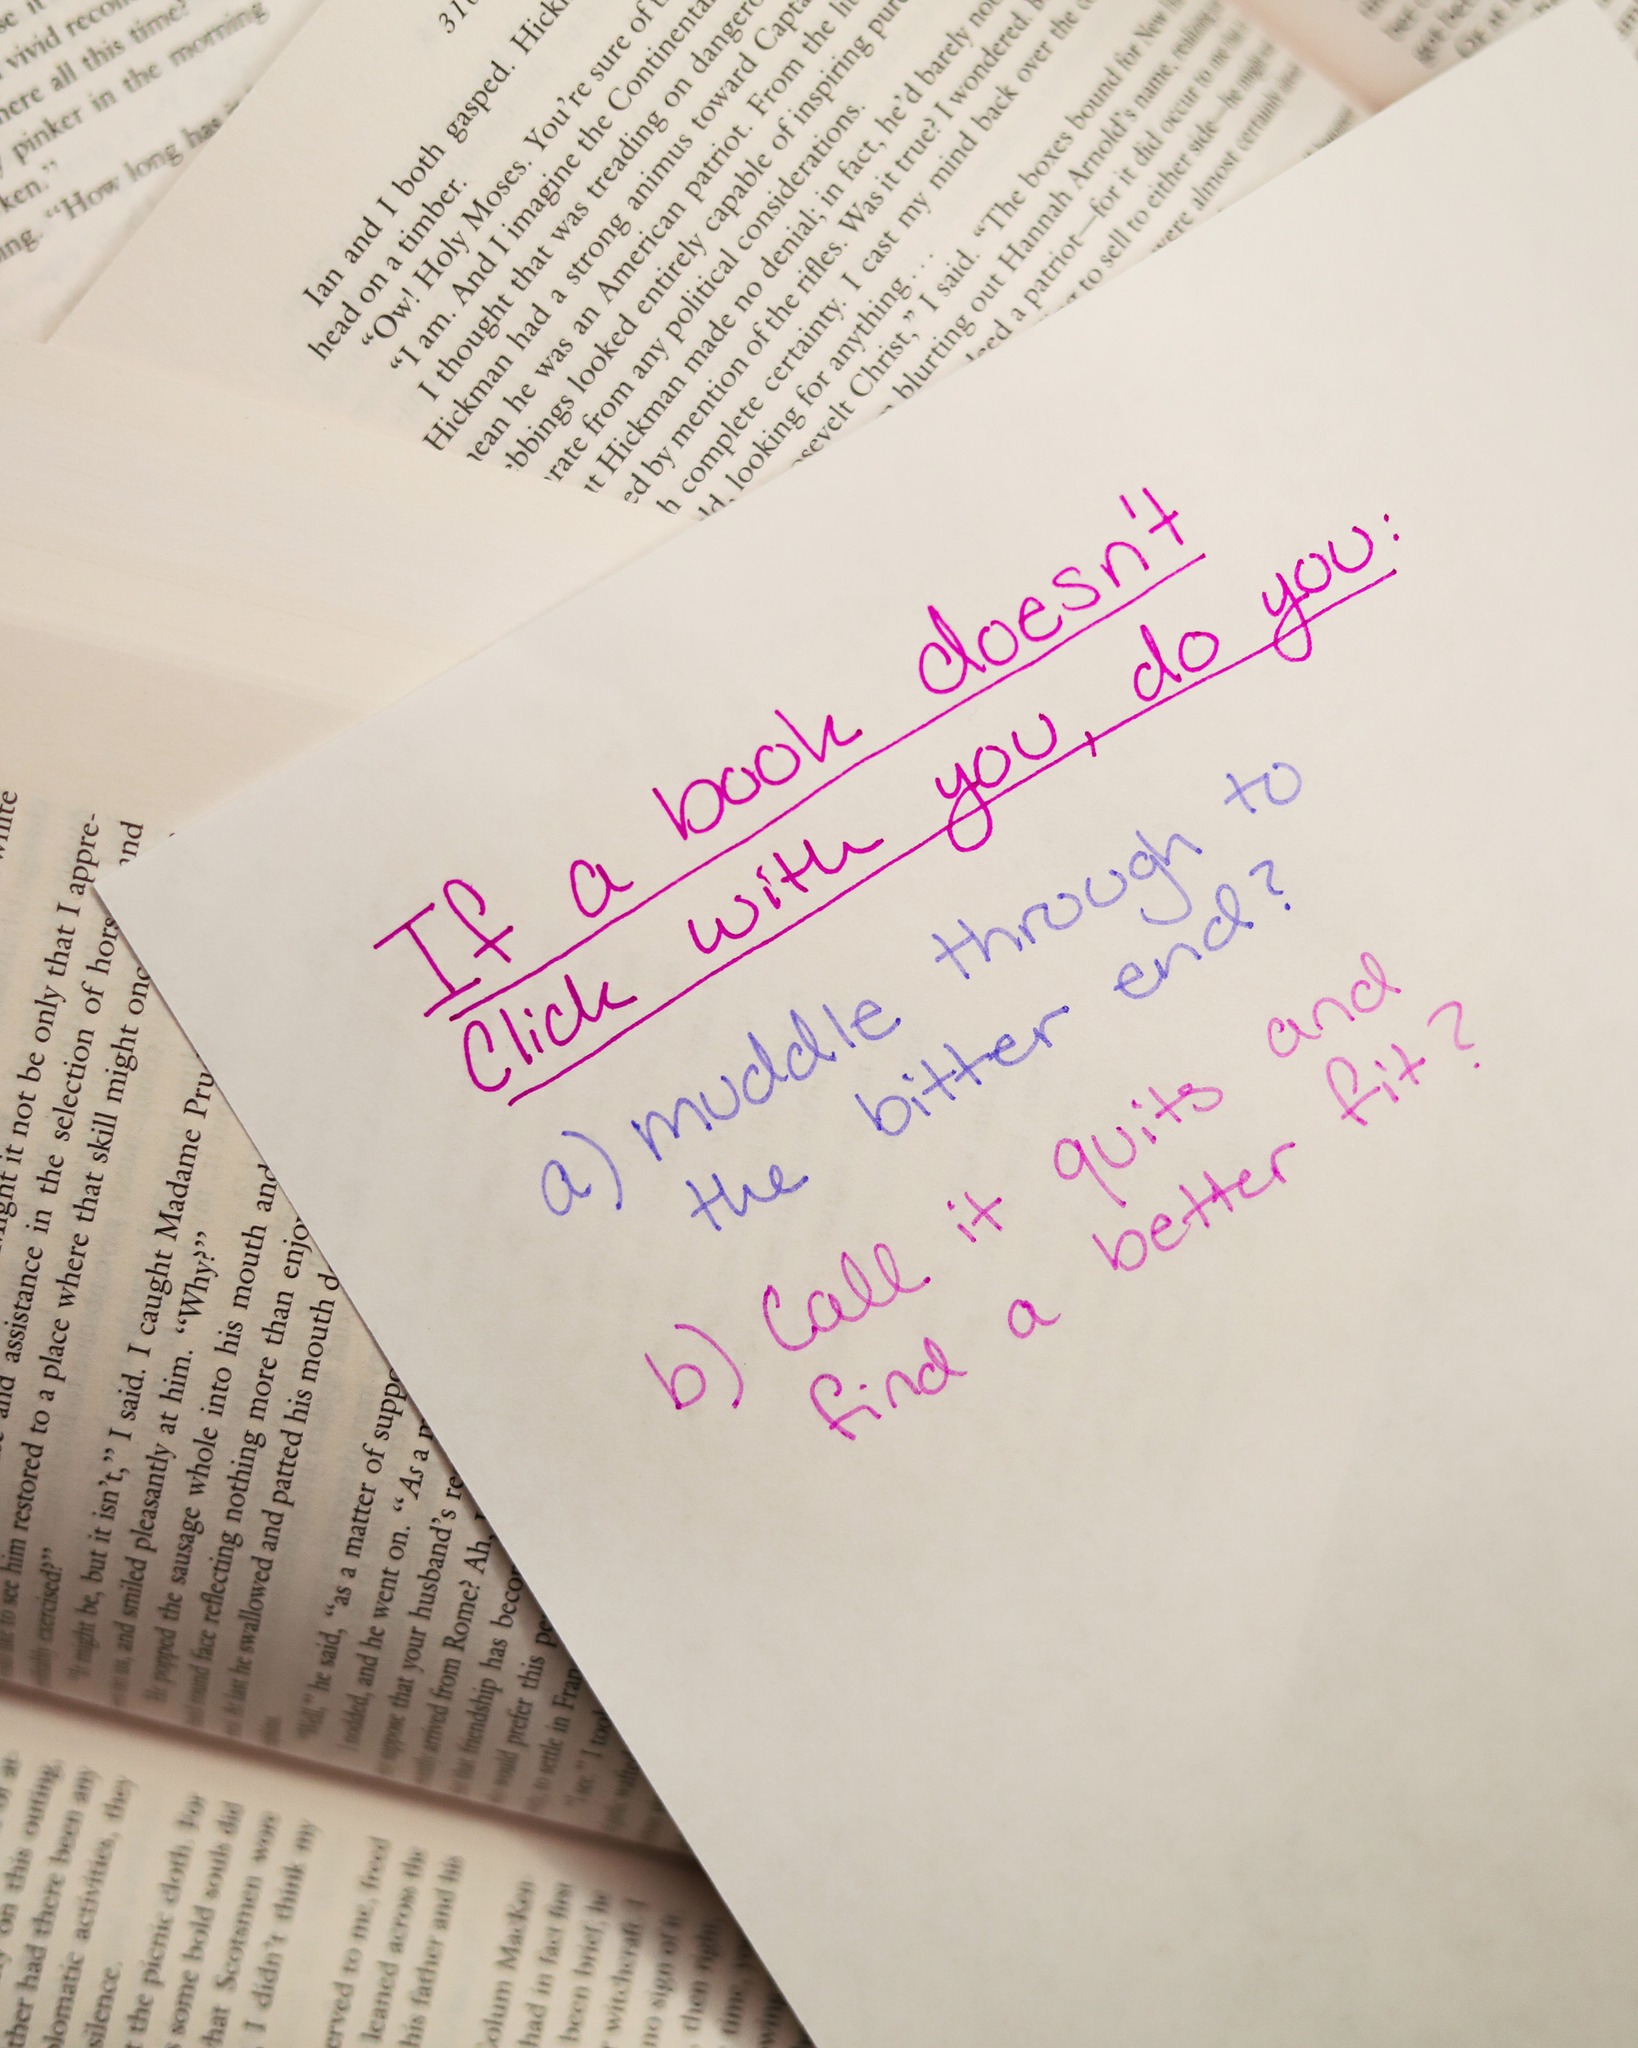 vivid recon
here all this time?
pinker in the morning
ken."
ng. "How long has
310
Ian and I both gasped. Hick
head on a timber.
"Ow! Holy Moses. You're sure of
"I am. And I imagine the Continental
I thought that was treading on dangero
Hickman had a strong animus toward Capta
ean he was an American patriot. From the
bbings looked entirely capable of inspiring pur
rate from any political considerations.
t Hickman made no denial; in fact, he'd barely no
ed by mention of the rifles. Was it true? I wondered.
h complete certainty. I cast my mind back over the
ld, looking for anything...
osevelt Christ," I said. "The boxes bound for New
blurting out Hannah Arnold's name, realizing
a patriot—for it did occur to me
to sell to either side—he might
were almost certainly
If a book doesn't
Click with you, do you:
a) muddle through to
the bitter end?
b) Call it quits and
find a better fit?
white
ght it not be only that I appre-
and assistance in the selection of hors and
restored to a place where that skill might onc
to see him
exercised?"
"It might be, but it isn't," I said. I caught Madame Pru
and smiled pleasantly at him. "Why?"
He popped the sausage whole into his mouth and
round face reflecting nothing more than enjoy
last he swallowed and patted his mouth d
"Well," he said, "as a matter of suppo
I nodded, and he went on. "As a m
suppose that your husband's re
arrived from Rome? Ah, I
that friendship has becom
would prefer this pe
to settle in Fran
"I see." I took
on this outing,
ther had there been any
lomatic activities, they
silence.
the picnic cloth. For
some bold souls did
hat Scotsmen won
I didn't think my
erved to me, freed
leaned across the
his father and his
Colum MacKen
had in fact first
been brief, he
witchcraft. I
no sign of it.
then right
time,